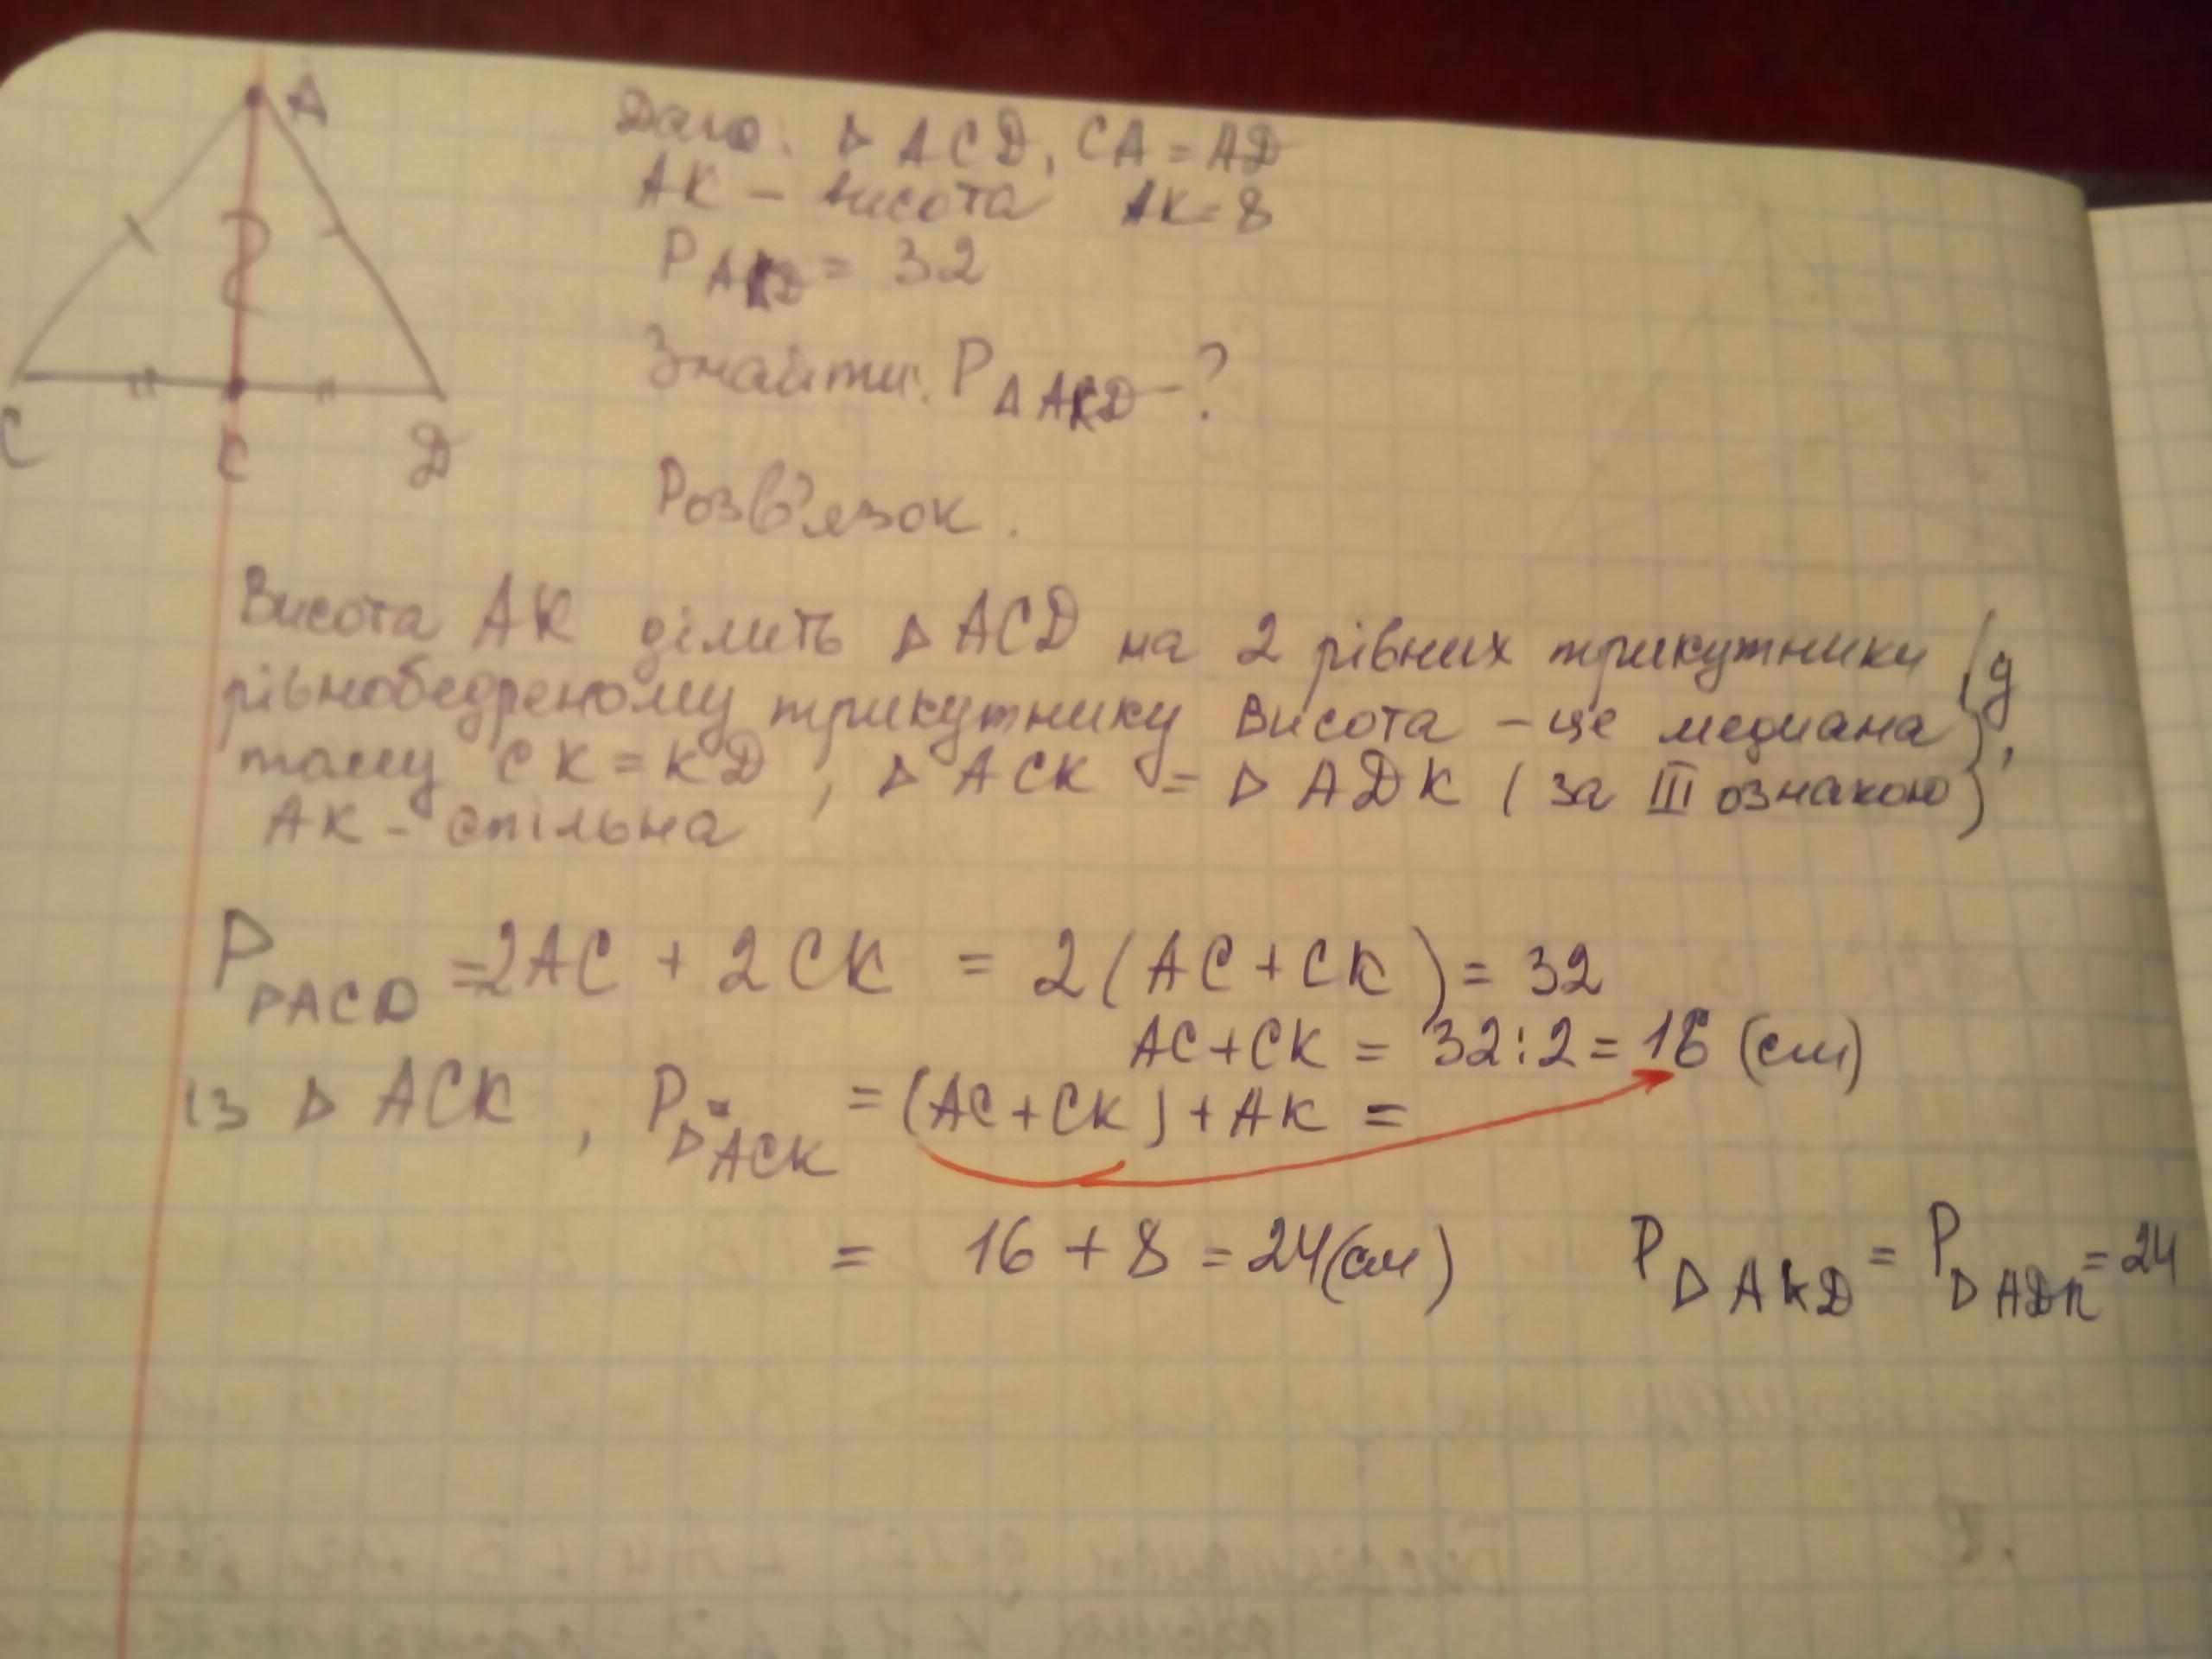 A
C
K
D
Дано: △ ACD, CA = AD
AK – висота AK = 8
P AKD = 32
Знайти: P △ AKD – ?
Розв'язок.
Висота AK ділить △ ACD на 2 рівних трикутники (у
рівнобедреному трикутнику висота – це медиана),
тому CK = KD, △ ACK = △ ADK (за III ознакою)
AK – спільна
P △ACD = 2AC + 2CK = 2(AC + CK) = 32
AC + CK = 32 : 2 = 16 (см)
із △ ACK, P △ACK = (AC + CK) + AK =
= 16 + 8 = 24 (см) P △ AKD = P △ ADK = 24